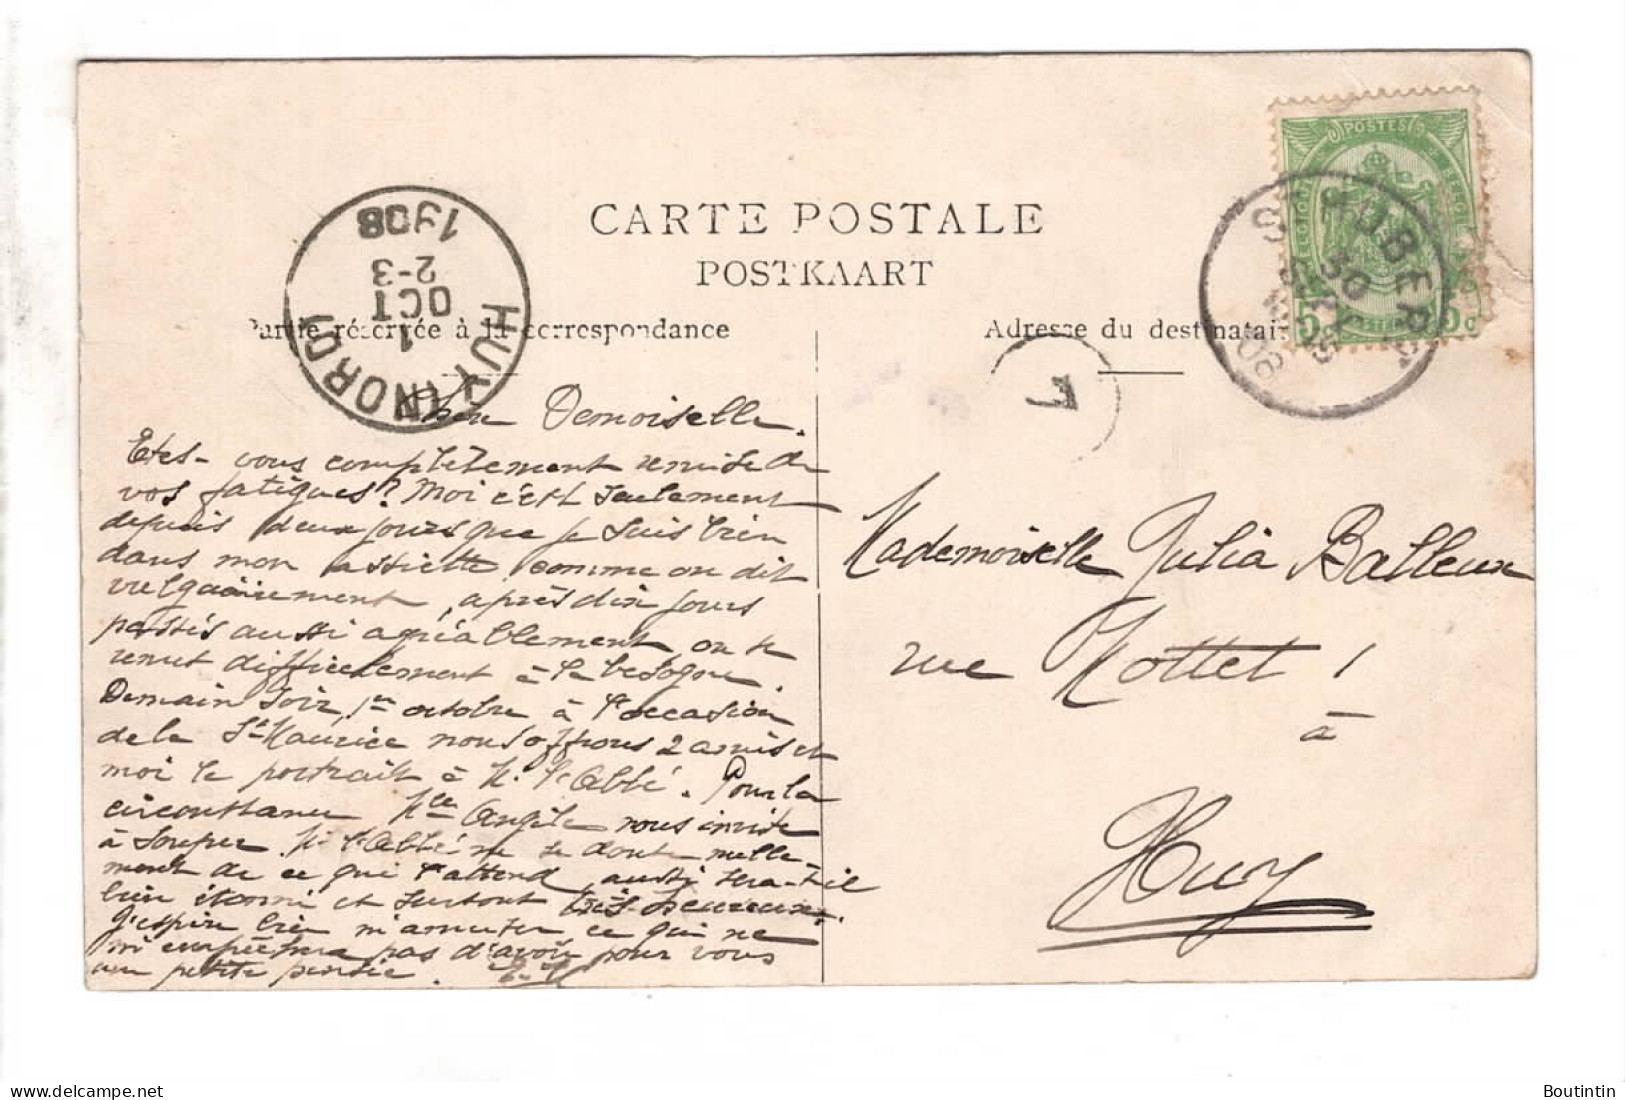 CARTE POSTALE
POSTKAART
Partie réservée à la correspondance
Adresse du destinataire
HUY (NORD)
1
OCT
2-3
1908
ST HUBERT
30
SEPT
POSTES
BELGIQUE
BELGIË
5c 5c
L
Chère Demoiselle.
Etes-vous complètement remise de
vos fatigues? Moi c'est seulement
depuis deux jours que je suis bien
dans mon assiette, comme on dit
vulgairement, après dix jours
passés aussi agréablement, on se
remet difficilement à la besogne.
Demain soir, 1er octobre à l'occasion
de la St Maurice nous offrons 2 amis et
moi le portrait à M. l'Abbé. Pour la
circonstance Mlle Angèle nous invite
à souper. M. l'Abbé ne se doute nulle-
ment de ce qui l'attend, aussi sera-t-il
bien étonné et surtout très-heureux.
J'espère bien m'amuser ce qui ne
m'empêchera pas d'avoir pour vous
une petite pensée.
Mademoiselle Julia Balleux
rue Mottet 1
à
Huy
Boutintin